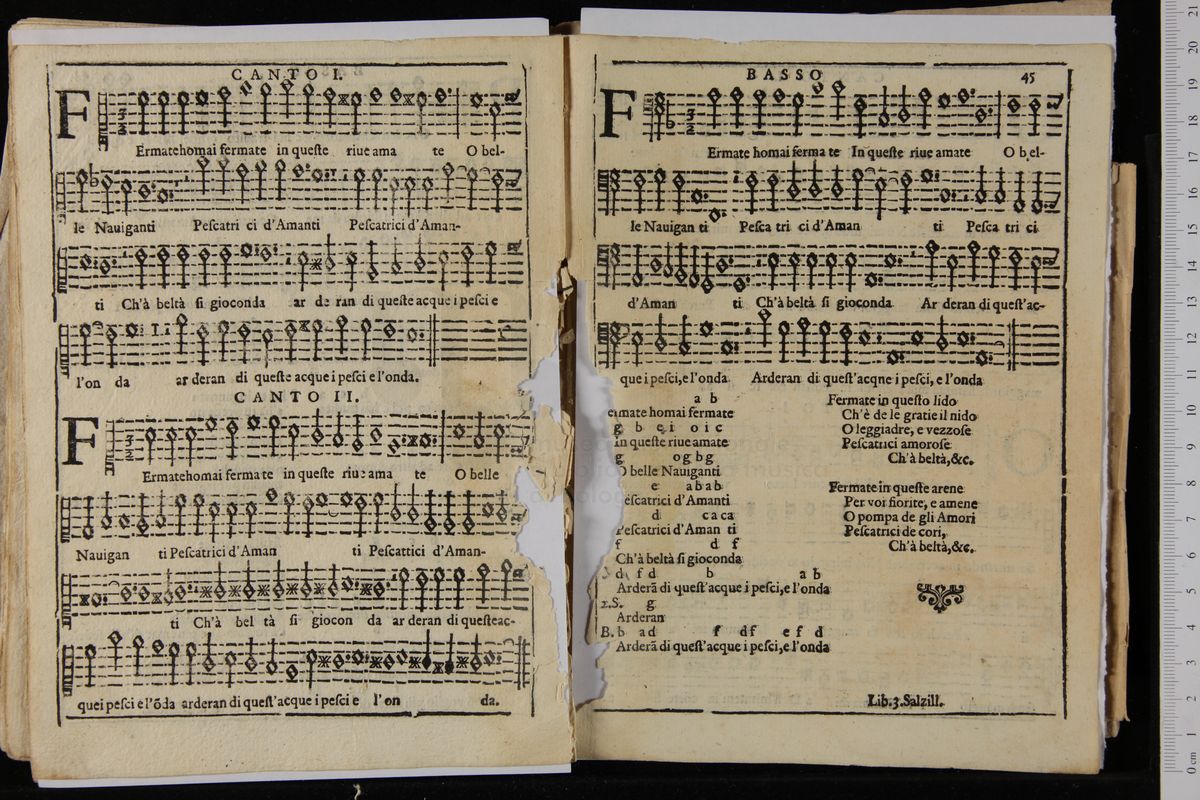 CANTO I.
F
Ermatehomai fermate in queſte riue ama te O bel-
le Nauiganti Peſcatri ci d'Amanti Peſcatrici d'Aman-
ti Ch'à beltà ſi gioconda ar de ran di queſte acque i peſci e
l'on da ar deran di queſte acque i peſci e l'onda.
CANTO II.
F
Ermatehomai fermate in queſte riue ama te O belle
Nauigan ti Peſcatrici d'Aman ti Peſcattici d'Aman-
ti Ch'à bel tà ſi giocon da ar deran di queſteac-
quei peſci e l'õda arderan di queſt'acque i peſci e l'on da.
BASSO
45
F
Ermate homai ferma te In queſte riue amate O bel-
le Nauigan ti Peſca tri ci d'Aman ti Peſca tri ci
d'Aman ti Ch'à beltà ſi gioconda Ar deran di queſt'ac-
que i peſci, e l'onda Arderan di queſt'acqne i peſci, e l'onda
a b
ermate homai fermate
g b e i o i c
In queſte riue amate
g o g b g
O belle Nauiganti
e a b a b
eſcatrici d'Amanti
d c a c a
Peſcatrici d'Aman ti
f d f
Ch'à beltà ſi gioconda
d f d b a b
Arderã di queſt'acque i peſci, e l'onda
2.S. g
Arderan
B. b a d f d f e f d
Arderã di queſt'acque i peſci, e l'onda
Fermate in queſto lido
Ch'è de le gratie il nido
O leggiadre, e vezzoſe
Peſcatrici amoroſe
Ch'à beltà, &c.
Fermate in queſte arene
Per voi fiorite, e amene
O pompa de gli Amori
Peſcatrici de cori,
Ch'à beltà, &c.
Lib. 3. Salzill.
0 cm 1 2 3 4 5 6 7 8 9 10 11 12 13 14 15 16 17 18 19 20 21